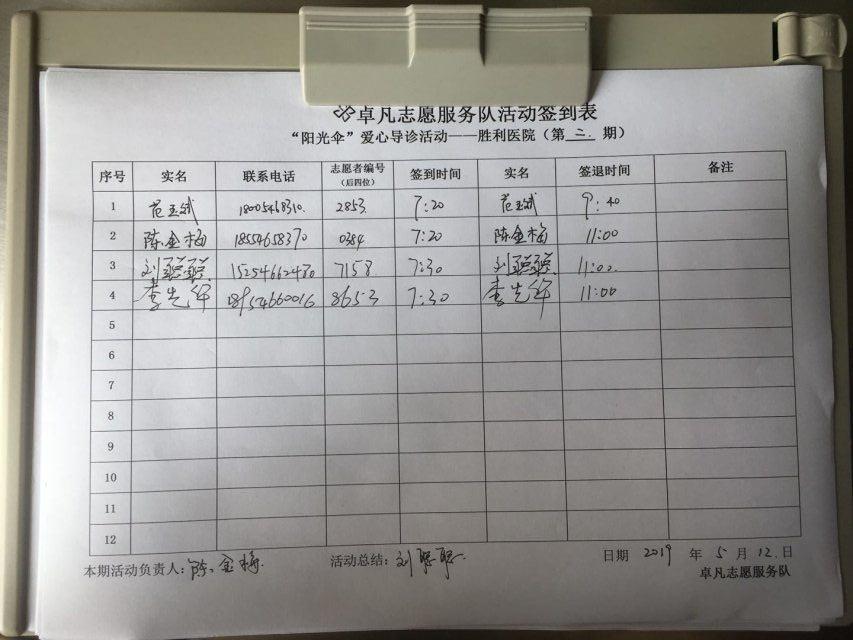 卓凡志愿服务队活动签到表
“阳光伞”爱心导诊活动——胜利医院（第 二 期）
序号 实名 联系电话 志愿者编号（后四位） 签到时间 实名 签退时间 备注
1 范玉斌 18005468310 2853 7:20 范玉斌 9:40
2 陈金梅 18554658370 0384 7:20 陈金梅 11:00
3 刘聪聪 15254662480 7158 7:30 刘聪聪 11:00
4 李先华 18954660016 8653 7:30 李先华 11:00
5
6
7
8
9
10
11
12
本期活动负责人：陈金梅 活动总结：刘聪聪 日期 2019 年 5 月 12 日
卓凡志愿服务队